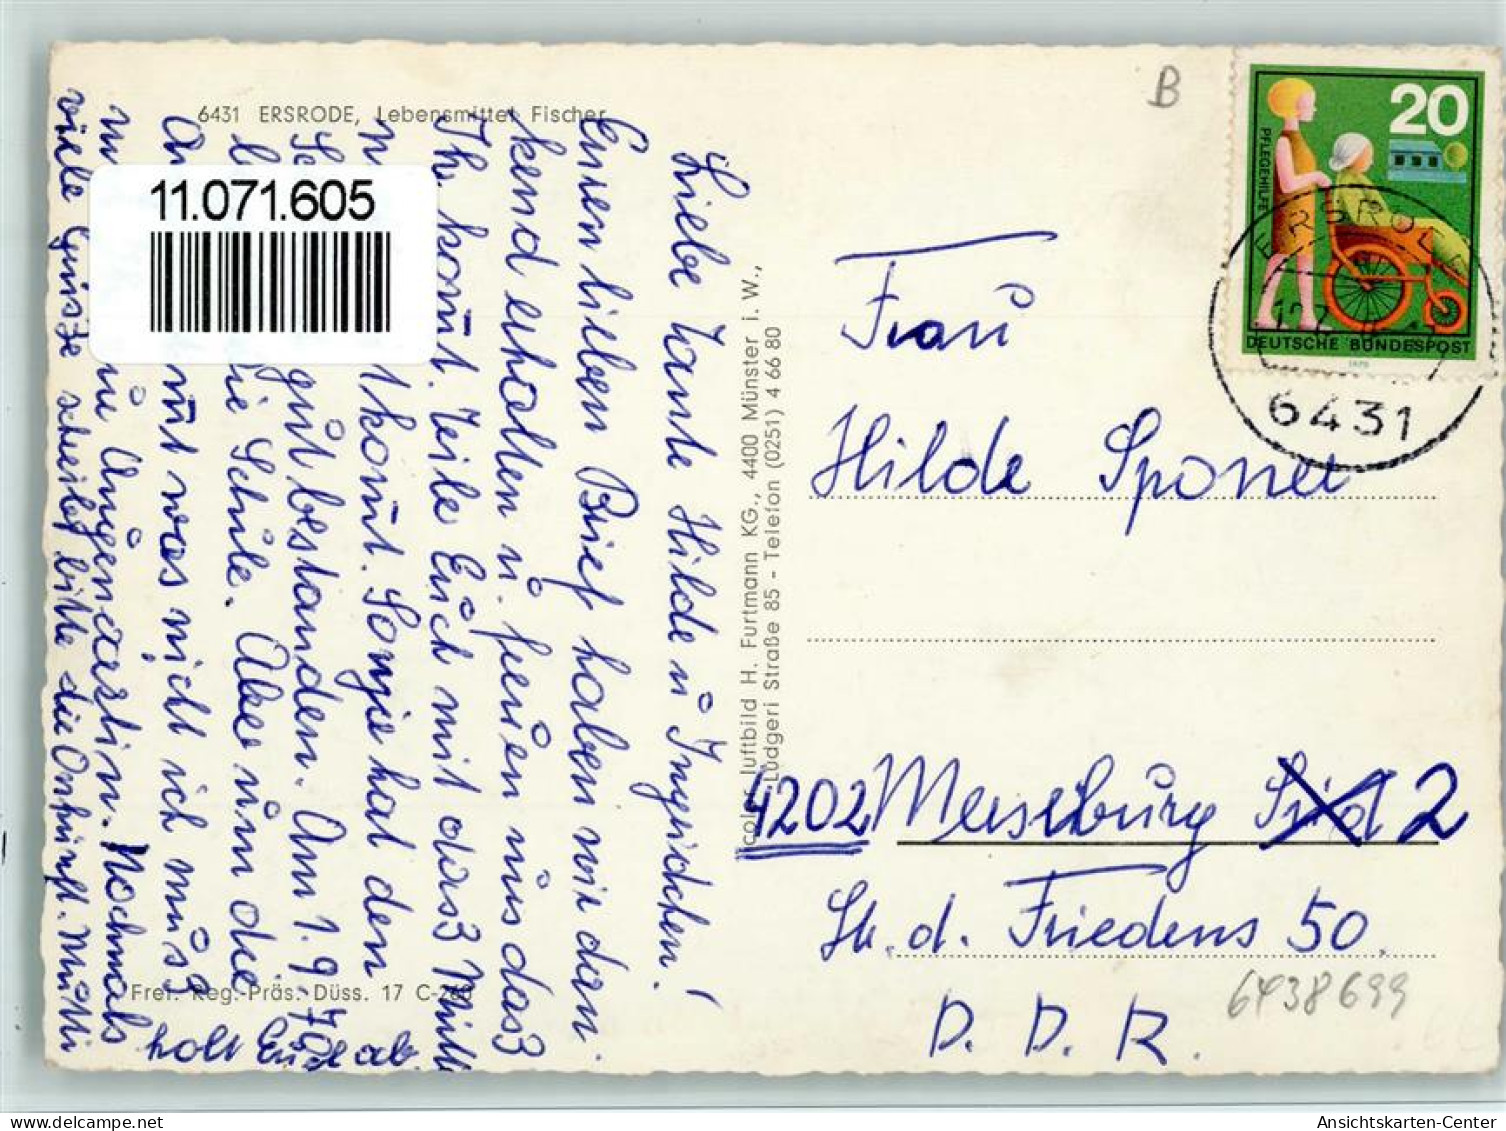 6431 ERSRODE, Lebensmittel Fischer
11.071.605
Liebe Tante Hilde u Ingridchen!
Euren lieben Brief haben wir dan
kend erhalten u. freuen uns das3
Ihr komt. Teile Euch mit das3 Mutti
komt. Sonje hat den
gut bestanden. Am 1.9.70
die Schule. Aber nun die
was nicht ich mus3
in Augenarstin. Nochmals
viele Grüs3e schreibt bitte die Ankunft. Mutti
holt Euch ab.
Fref. Reg.-Präs. Düss. 17 C-260
color luftbild H. Furtmann KG., 4400 Münster i. W.,
Lüdgeri Straße 85 - Telefon (0251) 4 66 80
B
20
PFLEGEHILFE
DEUTSCHE BUNDESPOST
1970
ERSRODE
6431
Frau
Hilde Sponer
4202 Merseburg Süd 2
Str. d. Friedens 50
6438699
D. D. R.
Ansichtskarten-Center